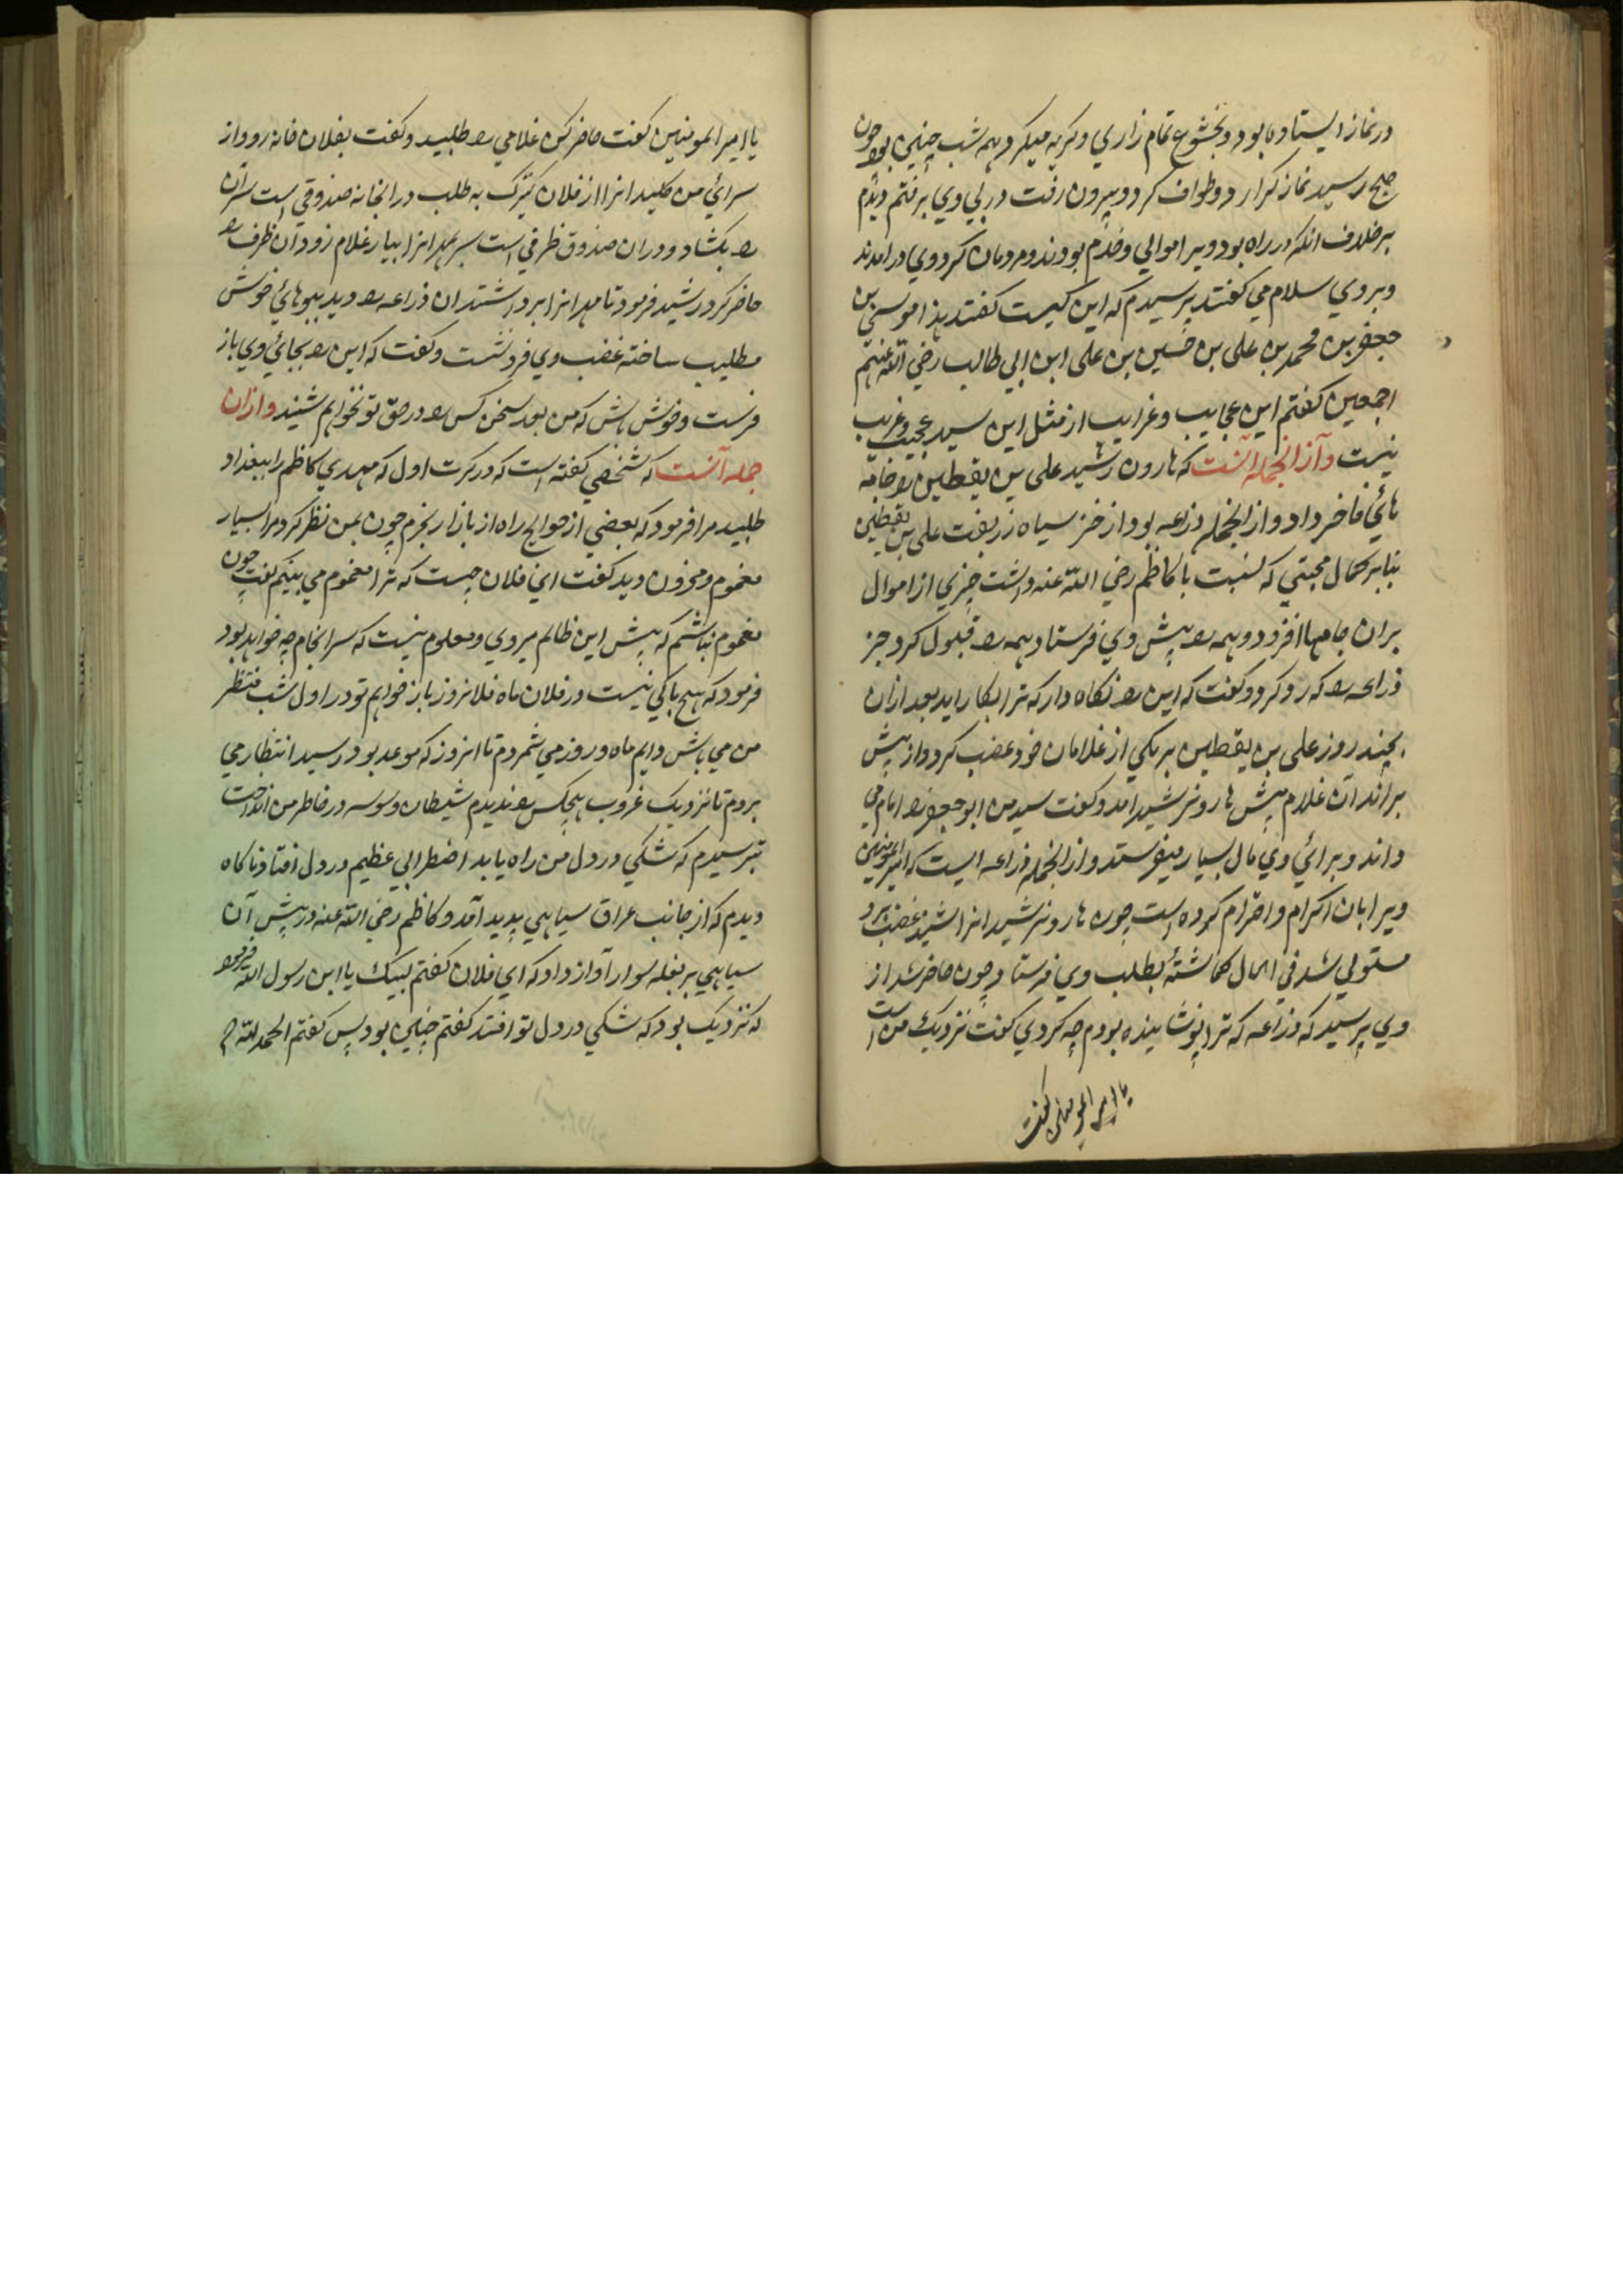 در نماز ایستاده بود و بخشوع تمام زاري و گریه میکرد همه شب چنین بود چون
صبح رسید نماز گزارد و طواف کرد و بیرون رفت در پي وي برفتم دیدم
برخلاف انکه در راه بود ویرا موالي و خدم بودند و مردمان گرد وي در امدند
و بر وي سلام مي گفتند پرسیدم که این کیست گفتند هذا موسی بن
جعفر بن محمد بن علی بن حسین بن علی ابن ابي طالب رضي الله عنهم
اجمعین گفتم این عجایب و غرایب از مثل این سید عجیب و غریب
نیست وآز انجمله آنست که هارون رشید علی بن یقطین را جامه
هائي فاخر داد و از انجمله دراعه بود از خز سیاه زربفت علی بن یقطین
بنا بر کمال محبتي که نسبت با کاظم رضي الله عنه داشت چیزي از اموال
بران جامها افزود و همه را پیش وي فرستاد همه را قبول کرد جز
دراعه را که رد کرد و گفت که این را نگاه دار که ترا بکار اید بعد ازان
بچند روز علی بن یقطین بر یکي از غلامان خود غضب کرد و از پیش
براند آن غلام پیش هارونرشید امد و گفت سید من ابو جعفر را امام مي
داند و براي وي مال بسیار میفرستد و از انجمله دراعه ایست که امیر المومنین
ویرا بان اکرام و احترام کرده است چون هارونرشید انرا شنید غضب برو
مستولي شد في الحال گماشته بطلب وي فرستاد و چون حاضر شد از
وي پرسید که دراعه که ترا پوشانیده بودم چه کردي گفت نزدیك من است
یا امیر المومنین گفت
یا امیر المومنین گفت حاضر کن غلامي را طلبید و گفت بفلان خانه رو و از
سرائي من کلید انرا از فلان کنیزک به طلب در انخانه صندوقي است سر آن
را بکشاد و دران صندوق ظرفي است سر بمهر انرا بیار غلام زود ان ظرف را
حاضر کرد رشید فرمود تا مهر انرا برداشتند ان دراعه را دید ببوهائي خوش
مطیب ساخته غضب وي فرو نشست و گفت که این را بجائي وي باز
فرست و خوش باش که من بعد سخن کس را در حق تو نخواهم شنید وازان
جمله آنست که شخصي گفته است که در کرت اول که مهدي کاظم را ببغداد
طلبید مرا فرمود که بعضي از حوایج راه از بازار بخرم چون بمن نظر کرد مرا بسیار
مغموم و محزون دید گفت اي فلان چیست که ترا مغموم مي بینم گفت چون
مغموم نباشم که پیش این ظالم میروي و معلوم نیست که سر انجام چه خواهد بود
فرمود که هیچ باکي نیست در فلان ماه فلانروز باز خواهم تو در اول شب منتظر
من مي باش دایم ماه و روز مي شمردم تا انروز که موعد بود رسید انتظار مي
بردم تا نزدیک غروب هیچکس را ندیدم شیطان وسوسه در خاطر من انداخت
بترسیدم که شکي در دل من راه یابد اضطرابي عظیم در دل افتاد ناکاه
دیدم که از جانب عراق سیاهي پدید آمد و کاظم رضي الله عنه در پیش آن
سیاهي بر بغله سوار آواز داد که اي فلان گفتم لبیك یا ابن رسول الله فرمود
که نزدیک بود که شکي در دل تو افتد گفتم چنین بود پس گفتم الحمد لله